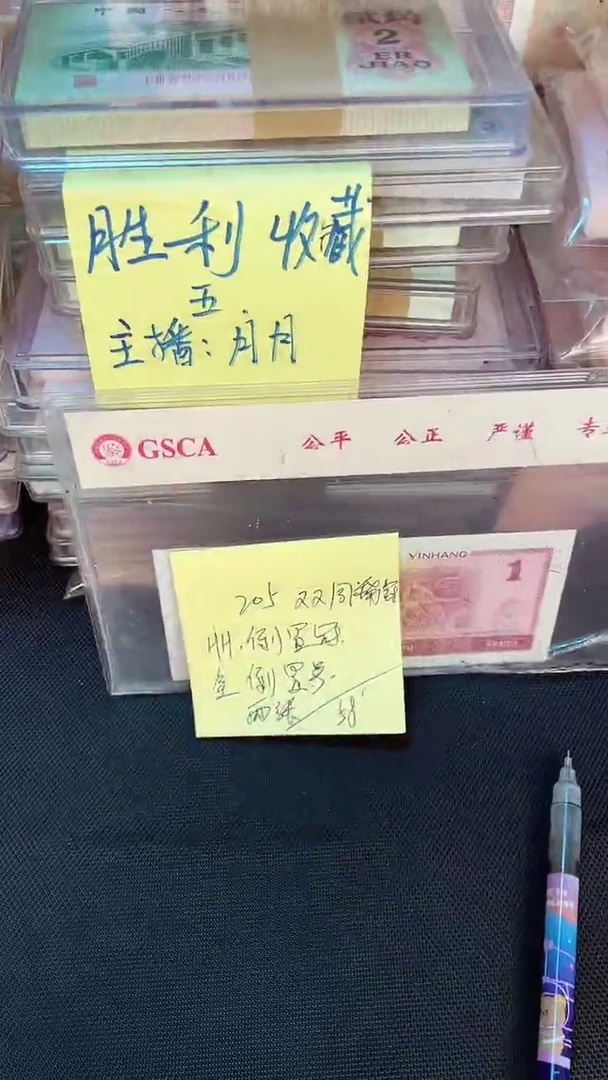 贰角
2
ER
JIAO
胜利 收藏
五
主播：月月
GSCA 公平 公正 严谨 专
YINHANG
1
205 双同
倒置冠
倒置号
两张 58